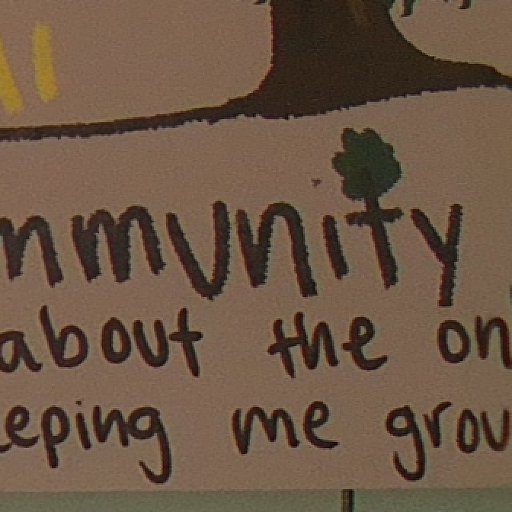 mmunity
about the on
eeping me grou